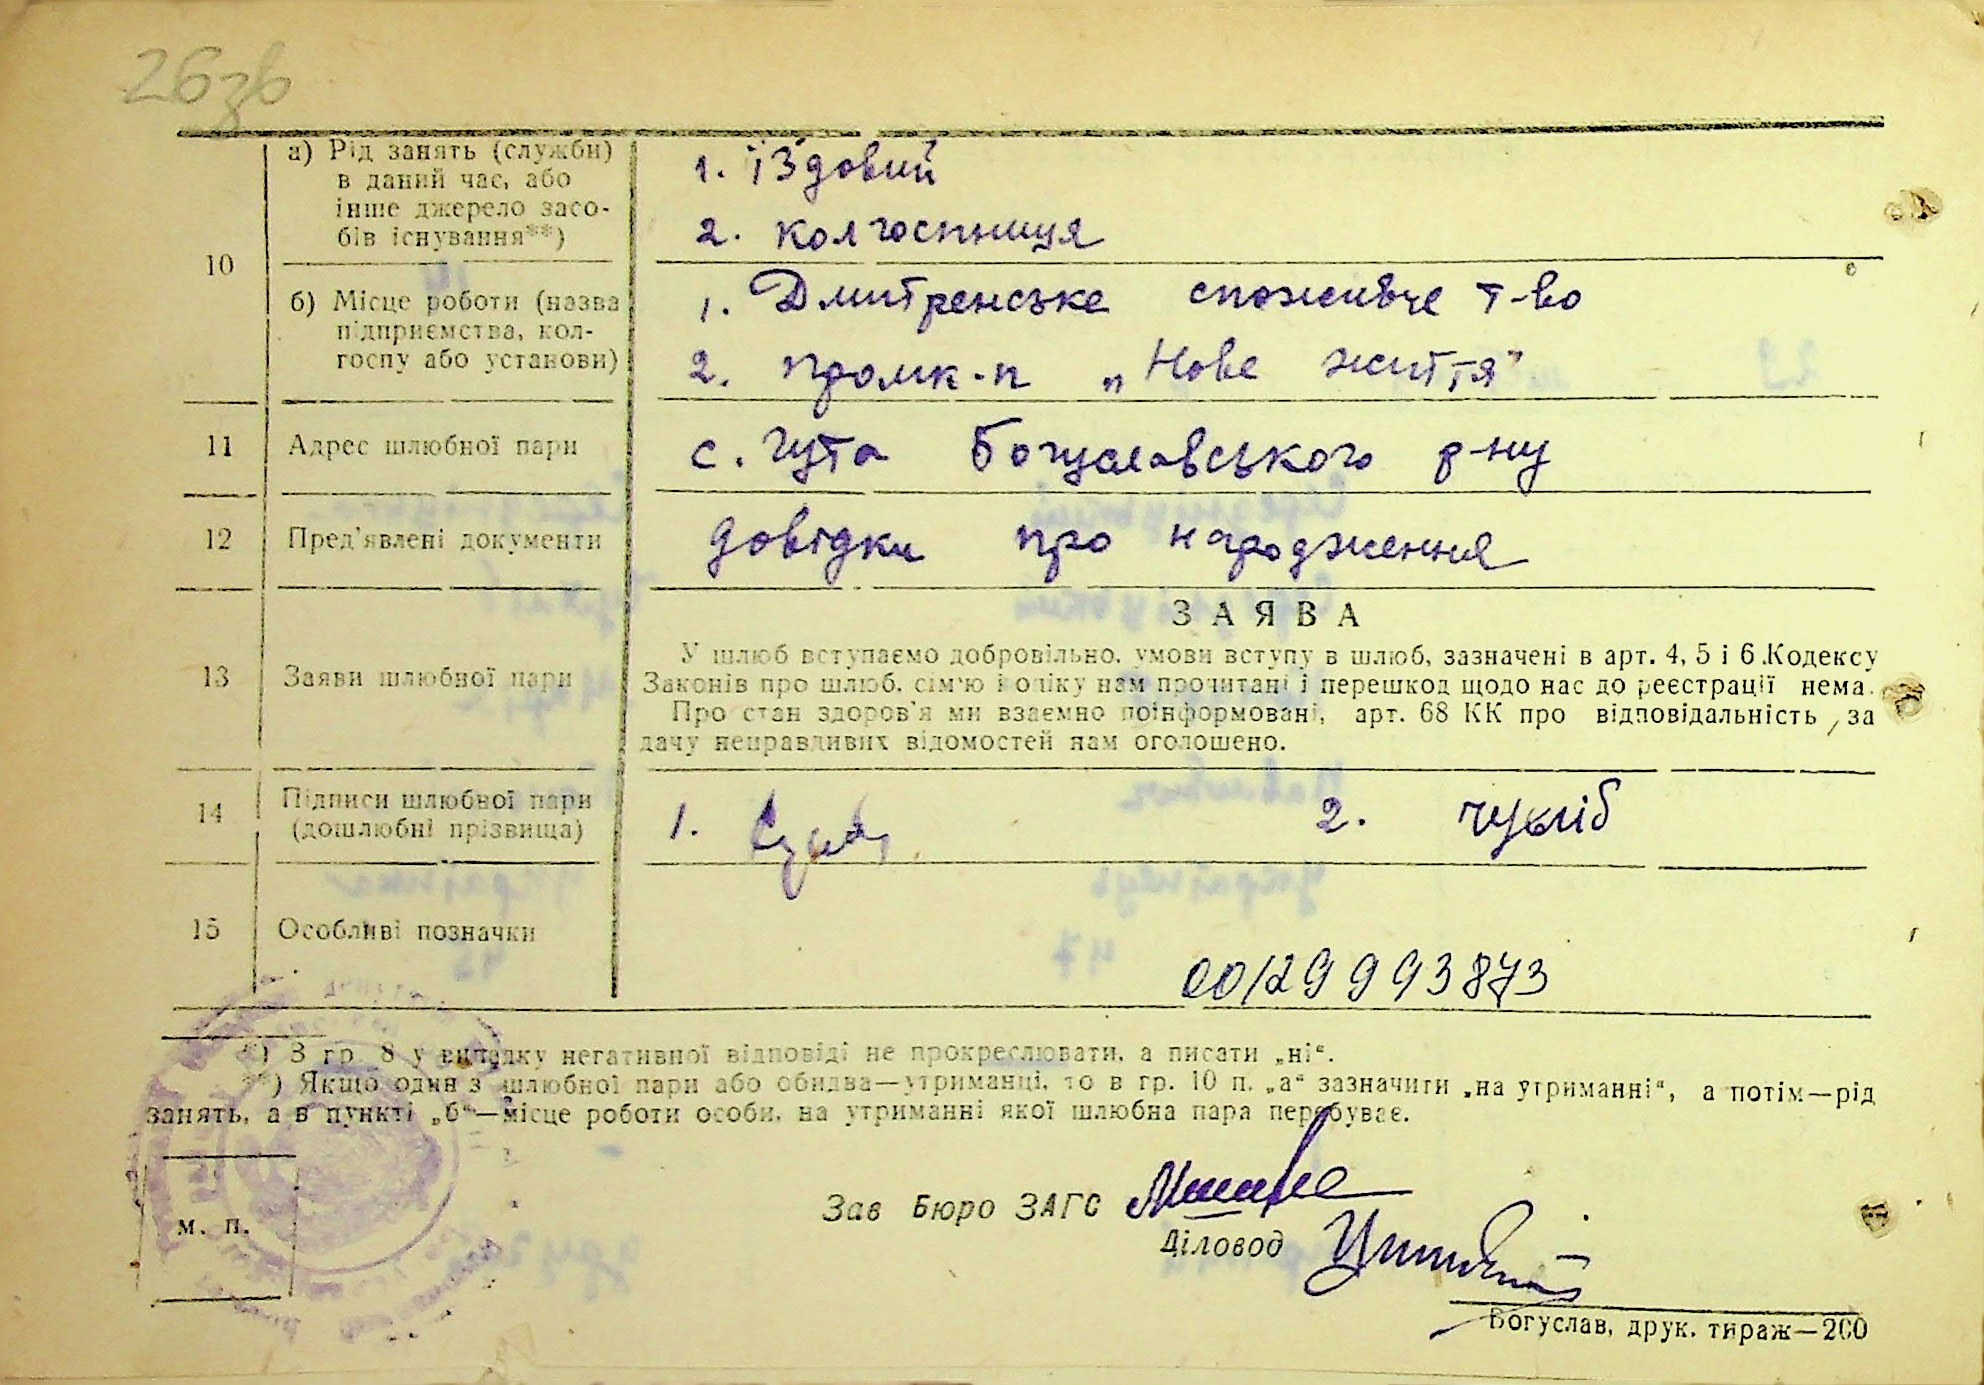 26зв
10
а) Рід занять (служби)
в даний час, або
інше джерело засо-
бів існування**)
1. їздовий
2. колгоспниця
б) Місце роботи (назва
підприємства, кол-
госпу або установи)
1. Дмитренське споживче т-во
2. промк-п „Нове життя"
11
Адрес шлюбної пари
с. Гута Богуславського р-ну
12
Пред'явлені документи
довідки про народження
13
Заяви шлюбної пари
ЗАЯВА
У шлюб вступаємо добровільно, умови вступу в шлюб, зазначені в арт. 4, 5 і 6 Кодексу
Законів про шлюб, сім'ю і опіку нам прочитані і перешкод щодо нас до реєстрації нема.
Про стан здоров'я ми взаємно поінформовані, арт. 68 КК про відповідальність за
дачу неправдивих відомостей нам оголошено.
14
Підписи шлюбної пари
(дошлюбні прізвища)
1.
2. Чукліб
15
Особливі позначки
00129993873
*) З гр. 8 у випадку негативної відповіді не прокреслювати, а писати „ні“.
**) Якщо один з шлюбної пари або обидва—утриманці, то в гр. 10 п. „а“ зазначити „на утриманні“, а потім—рід
занять, а в пункті „б“—місце роботи особи, на утриманні якої шлюбна пара перебуває.
м. п.
Зав Бюро ЗАГС
Діловод
Богуслав, друк. тираж—200